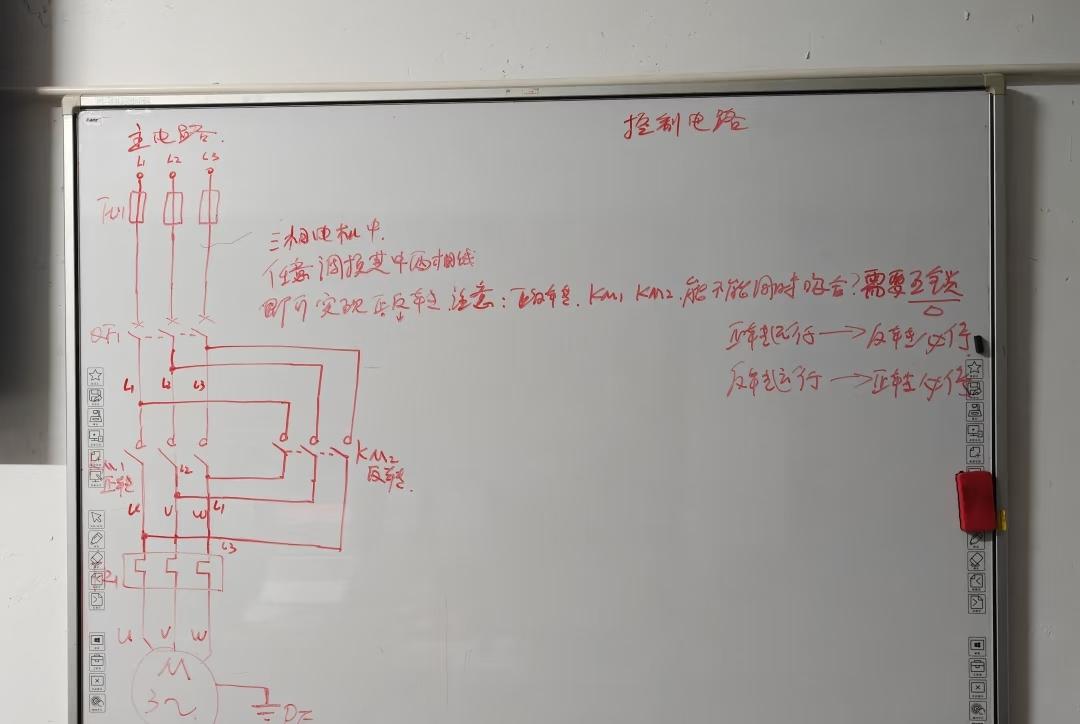 主电路.
控制电路
L1 L2 L3
FU1
三相电机中.
任意调换其中两相线
即可实现正反转. 注意:正反转. KM1 KM2.能不能同时吸合?需要互锁
正转运行→反转不行
反转运行→正转不行
QF1
L1 L2 L3
KM2
反转.
M1
正转
L2
L1
U V W
L3
U V W
M
3~